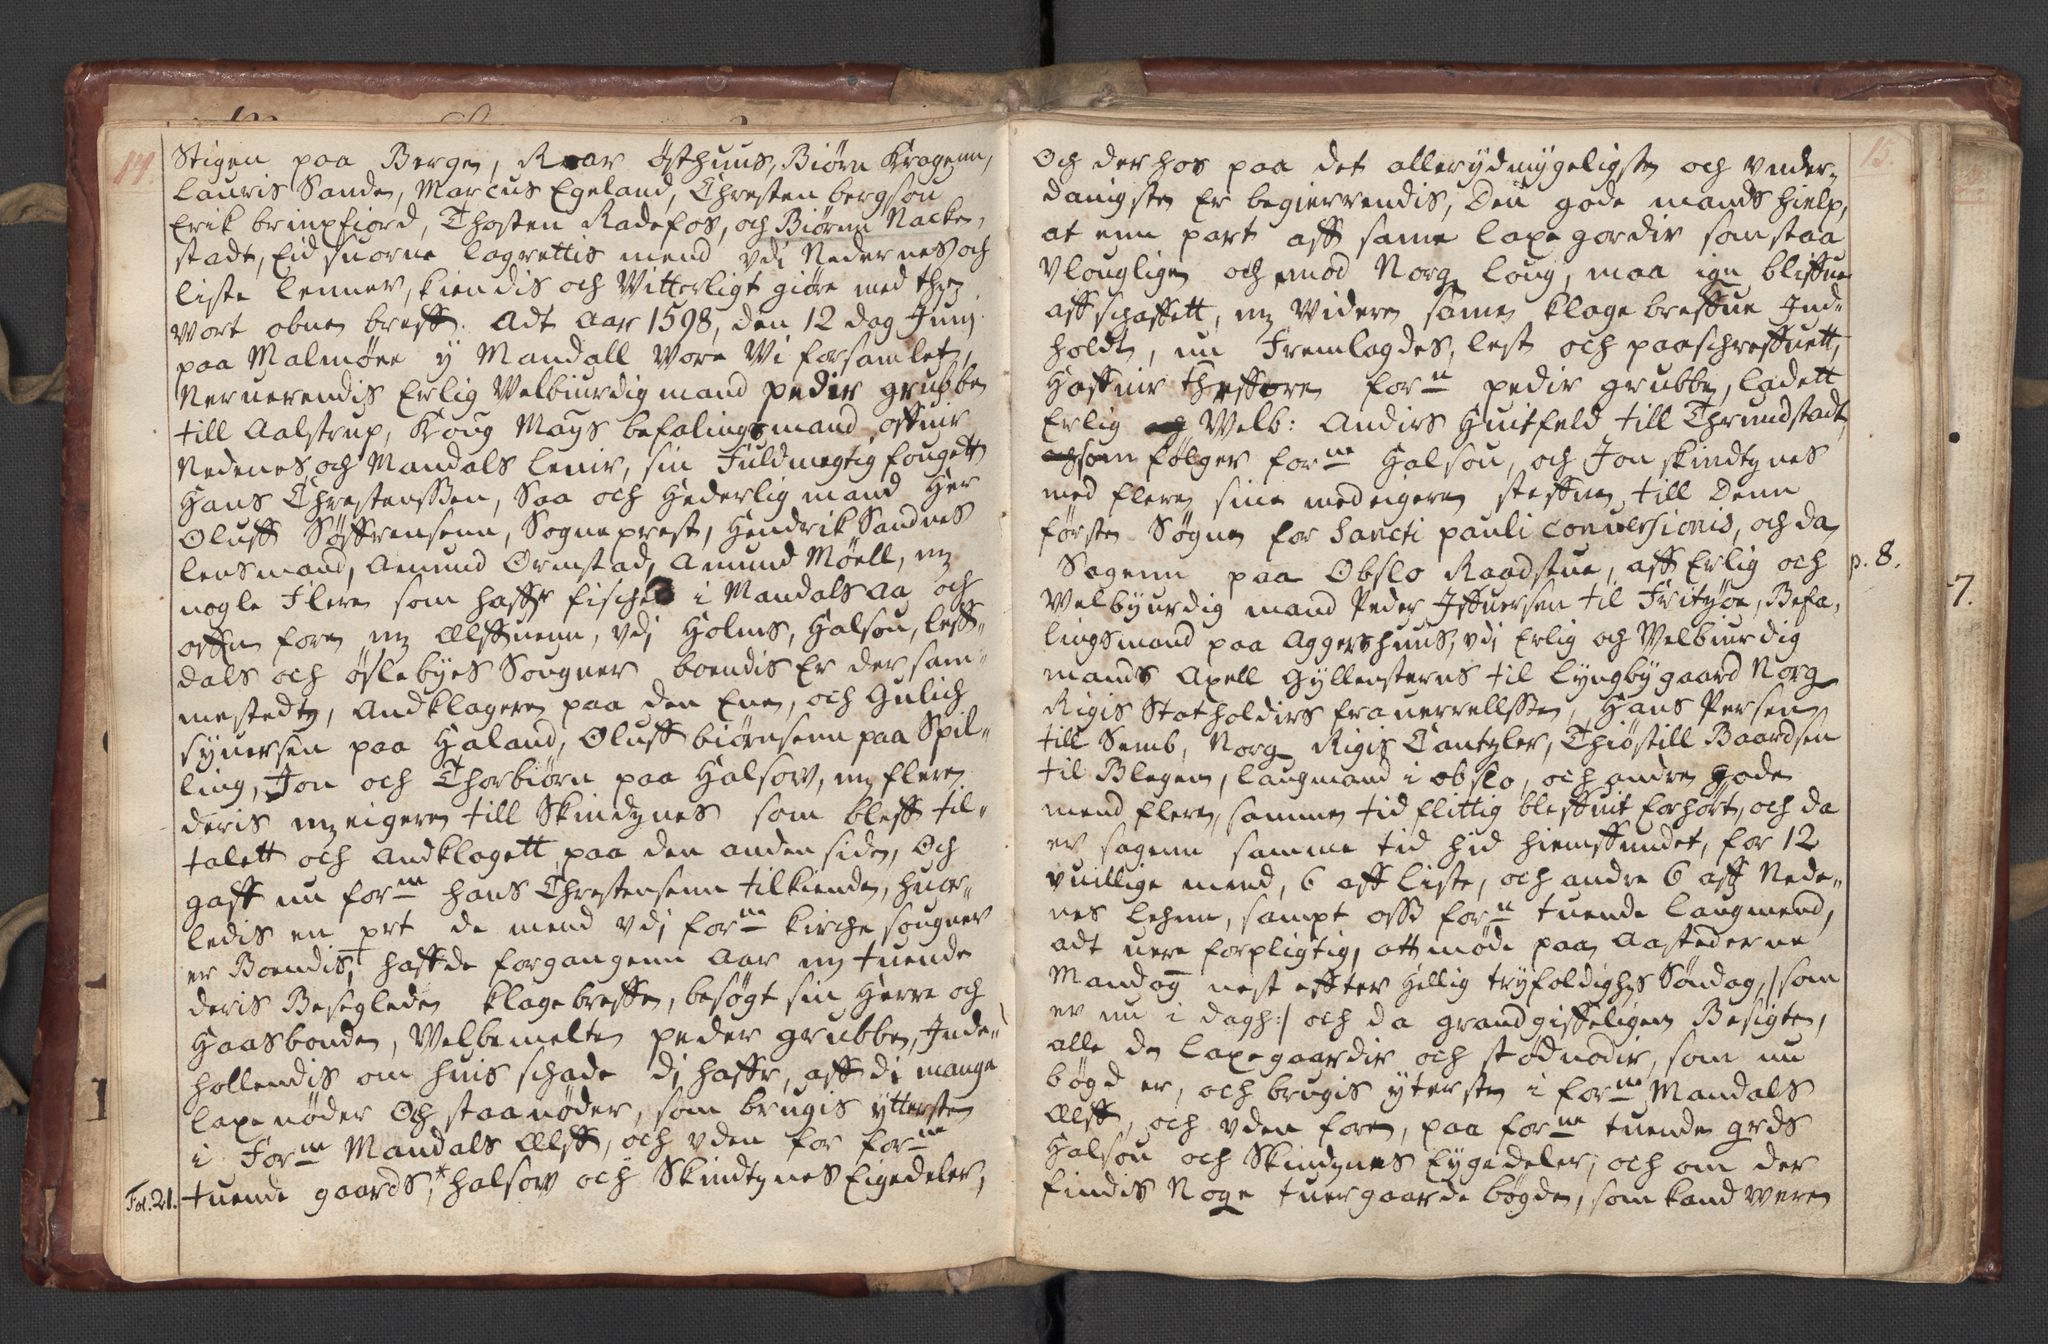 14
Stigen paa Bergen, Roar Østhuus, Biørn Krogenn,
Lauris Sande, Marcus Egeland, Chresten bergsou
Erik brinxfiord, Thosten Radefos, och Biørnn Nacke-
stadt, Eidsuorne lagrettis mend vdi Nedernes och
liste lenner, kiendis och Witterligt giøre med thz
Wort obne breff. Adt Aar 1598, den 12 dag Junj
paa Malmøen y Mandall Wore Wi forsamlet,
Neruerendis Erlig Welbiurdig mand pedir grubbe
till Aalstrup, Koug Mays befalingsmand offuir
Nedenes och Mandals lenir, sin Fuldmegtig fougett
Hans Chrestenssen, Saa och Hederlig mand Her
Oluff Søffrensenn, Sogneprest, Hendrik Sandnes
lensmand, Amund Ormstad, Amund Møell, mz
nogle Flere som haffr fischet i Mandals Aa och
offn foren mz Elffuenn, vdj Holms, Halsou, leff-
dals och øslebyes Sougner boendis Er der sam-
mestedtz, Andklagere paa den Ene, och Gulich
syuersen paa Haland, Oluff biørnsenn paa Spil-
ling, Jon och Thorbiørn paa Halsow, mz flere
deris mzeigere till Skindznes som bleff til-
talett och Andklagett paa den anden side, Och
gaff nu forne Hans Chrestensenn tilkiende, huor-
ledis en prt de mend vdj forne kirche sougner
er Boendis, haffde forgangenn Aar mz tuende
deris Beseglede klagebreffe, besøgt sin Herre och
Haasbonde, Welbemelte peder grubbe, Inde-
hollendis om huis schade dj haffr, aff di mange
laxenøder Och staanøder, som brugis ytterste
i Forne Mandals Elff, och vden for forne
Fol. 21. tuende gaards, * halsow och Skindtznes Eigedeler,
15.
Och derhos paa det allerydmygeligste och vnder-
danigste Er begierrendis, Den gode mands hielp,
at enn part aff same laxegordir som staa
Vlougligen och mod Norgs Loug, maa ign bliffue
affschaffett, mz Widere samme klagebreffue Ind-
holdt, nu Fremlagdes, lest och paaschreffuett,
Haffuir theffore forne pedir grubbe, ladett
Erlig Welb: Andirs Huitfeld till Thrundstadt,
som følger forne Halsou, och Jon skindtznes
med flere sine medeigere steffne till Denn
første Søgne for Sancti pauli conuersionis, och da
Sagenn paa Obslo Raadstue, aff Erlig och
p. 8.
Welbyurdig mand Peder Iffuersen til Fritzøe, Befa-
lingsmand paa Aggershuus, vdi Erlig och Welbiurdig
mands Axell Gyllensterns til Lyngbygaard Norgs
Rigis Statholdirs frauerrellsse, Hans Persen
till Semb, Norgs Rigis Cantzler, Thiøstill Baardsen
til Blegen, laugmand i obslo, och andre gode
mend flere, samme tid flittig bleffuit forhørt, och da
er sagenn samme tid hid hiemffundet, for 12
vuillige mend, 6 aff liste, och andre 6 aff Nede-
nes lehnn, sampt osss forne tuende laugmend,
adt uere forpligtig, att møde paa Aastederne
Mandag nest effter Hellig tryfoldighs Søndag, /:som
er nu i dagh:/ och da grandgiffueligen Besigte,
alle de laxegaardir och stødnødir, som nu
bøgd er, och brugis yterste i forne Mandals
Elff, och vden fore, paa forne tuende grds
Halsou och Skindznes Eygedeler, och om der
findis Noge tuergaarde bøgde, som kand were
7.